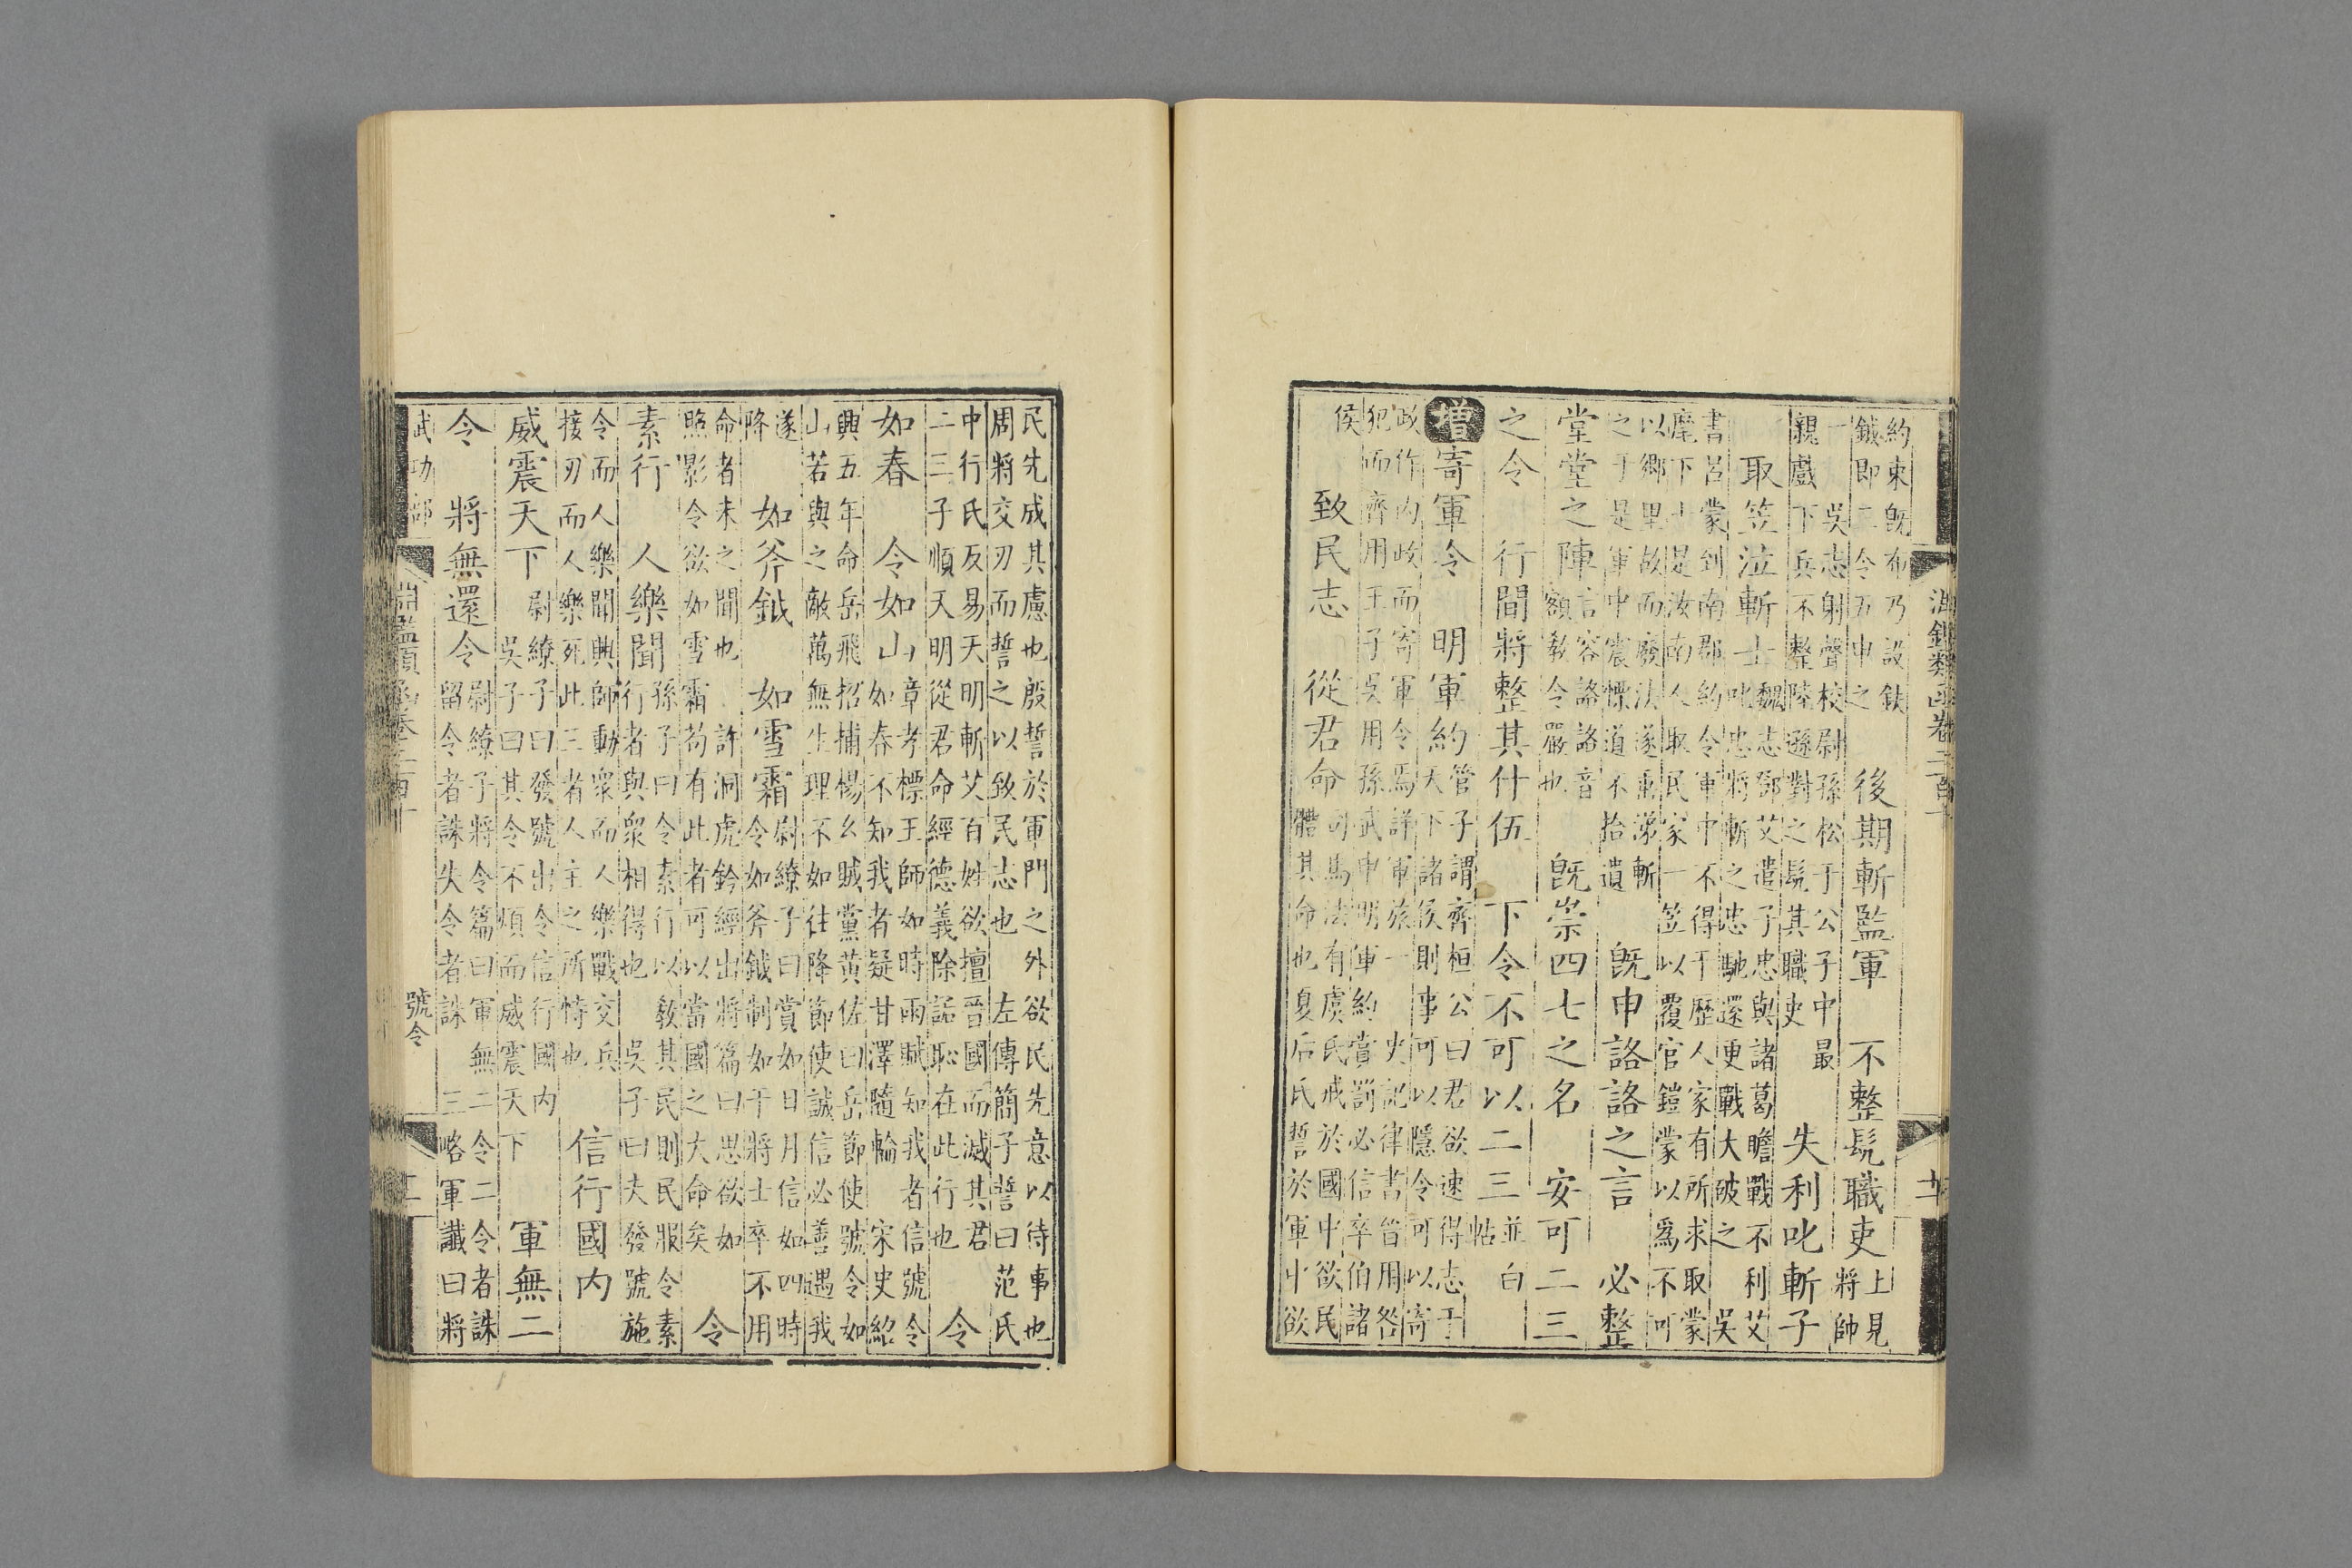 淵鑑類函卷二百十一
約束既布乃設鈇
鉞即三令五申之
後期斬監軍　不整髡職吏
上見
將帥
一　吳志射聲校尉孫松于公子中最
親戲下兵不整陸遜對之髡其職吏
失利叱斬子
取笠泣斬士
魏志鄧艾遣子忠與諸葛瞻戰不利艾
叱忠將斬之忠馳還更戰大破之　吳
書呂蒙到南郡約令軍中不得干歷人家有所求取蒙
麾下士是汝南人取民家一笠以覆官鎧蒙以爲不可
以鄉里故而廢法遂垂涕斬
之于是軍中震慄道不拾遺
既申詻詻之言　必整
堂堂之陣
言容詻詻音
額教令嚴也
既崇四七之名　安可二三
之令　行間將整其什伍　下令不可以二三
並白
帖
增寄軍令　明軍約
管子謂齊桓公曰君欲速得志于
天下諸侯則事可以隱令可以寄
政作内政而寄軍令焉詳軍旅一　史記律書晉用咎
犯而齊用王子吳用孫武申明軍約賞罰必信卒伯諸
侯
致民志　從君命
司馬法有虞氏戒於國中欲民
體其命也夏后氏誓於軍中欲
民先成其慮也殷誓於軍門之外欲民先意以待事也
周將交刃而誓之以致民志也　左傳簡子誓曰范氏
中行氏反易天明斬艾百姓欲擅晉國而滅其君
二三子順天明從君命經德義除詬恥在此行也
令
如春　令如山
章孝標王師如時雨賦知我者信號令
如春不知我者疑甘澤隨輪　宋史紹
興五年命岳飛招捕楊么賊黨黃佐曰岳節使號令如
山若與之敵萬無生理不如往降節使誠信必善遇我
遂
降
如斧鉞　如雪霜
尉繚子曰賞如日月信如四時
令如斧鉞制如干將士卒不用
命者未之聞也　許洞虎鈐經出將篇曰思欲如
照影令欲如雪霜苟有此者可以當國之大命矣
令
素行　人樂聞
孫子曰令素行以教其民則民服令素
行者與衆相得也　吳子曰夫發號施
令而人樂聞興師動衆而人樂戰交兵
接刃而人樂死此三者人主之所恃也
信行國内
威震天下
尉繚子曰發號出令信行國内
吳子曰其令不煩而威震天下
軍無二
令　將無還令
尉繚子將令篇曰軍無二令二令者誅
留令者誅失令者誅　三略軍讖曰將
武功部
淵鑑類函卷二百十一
號令